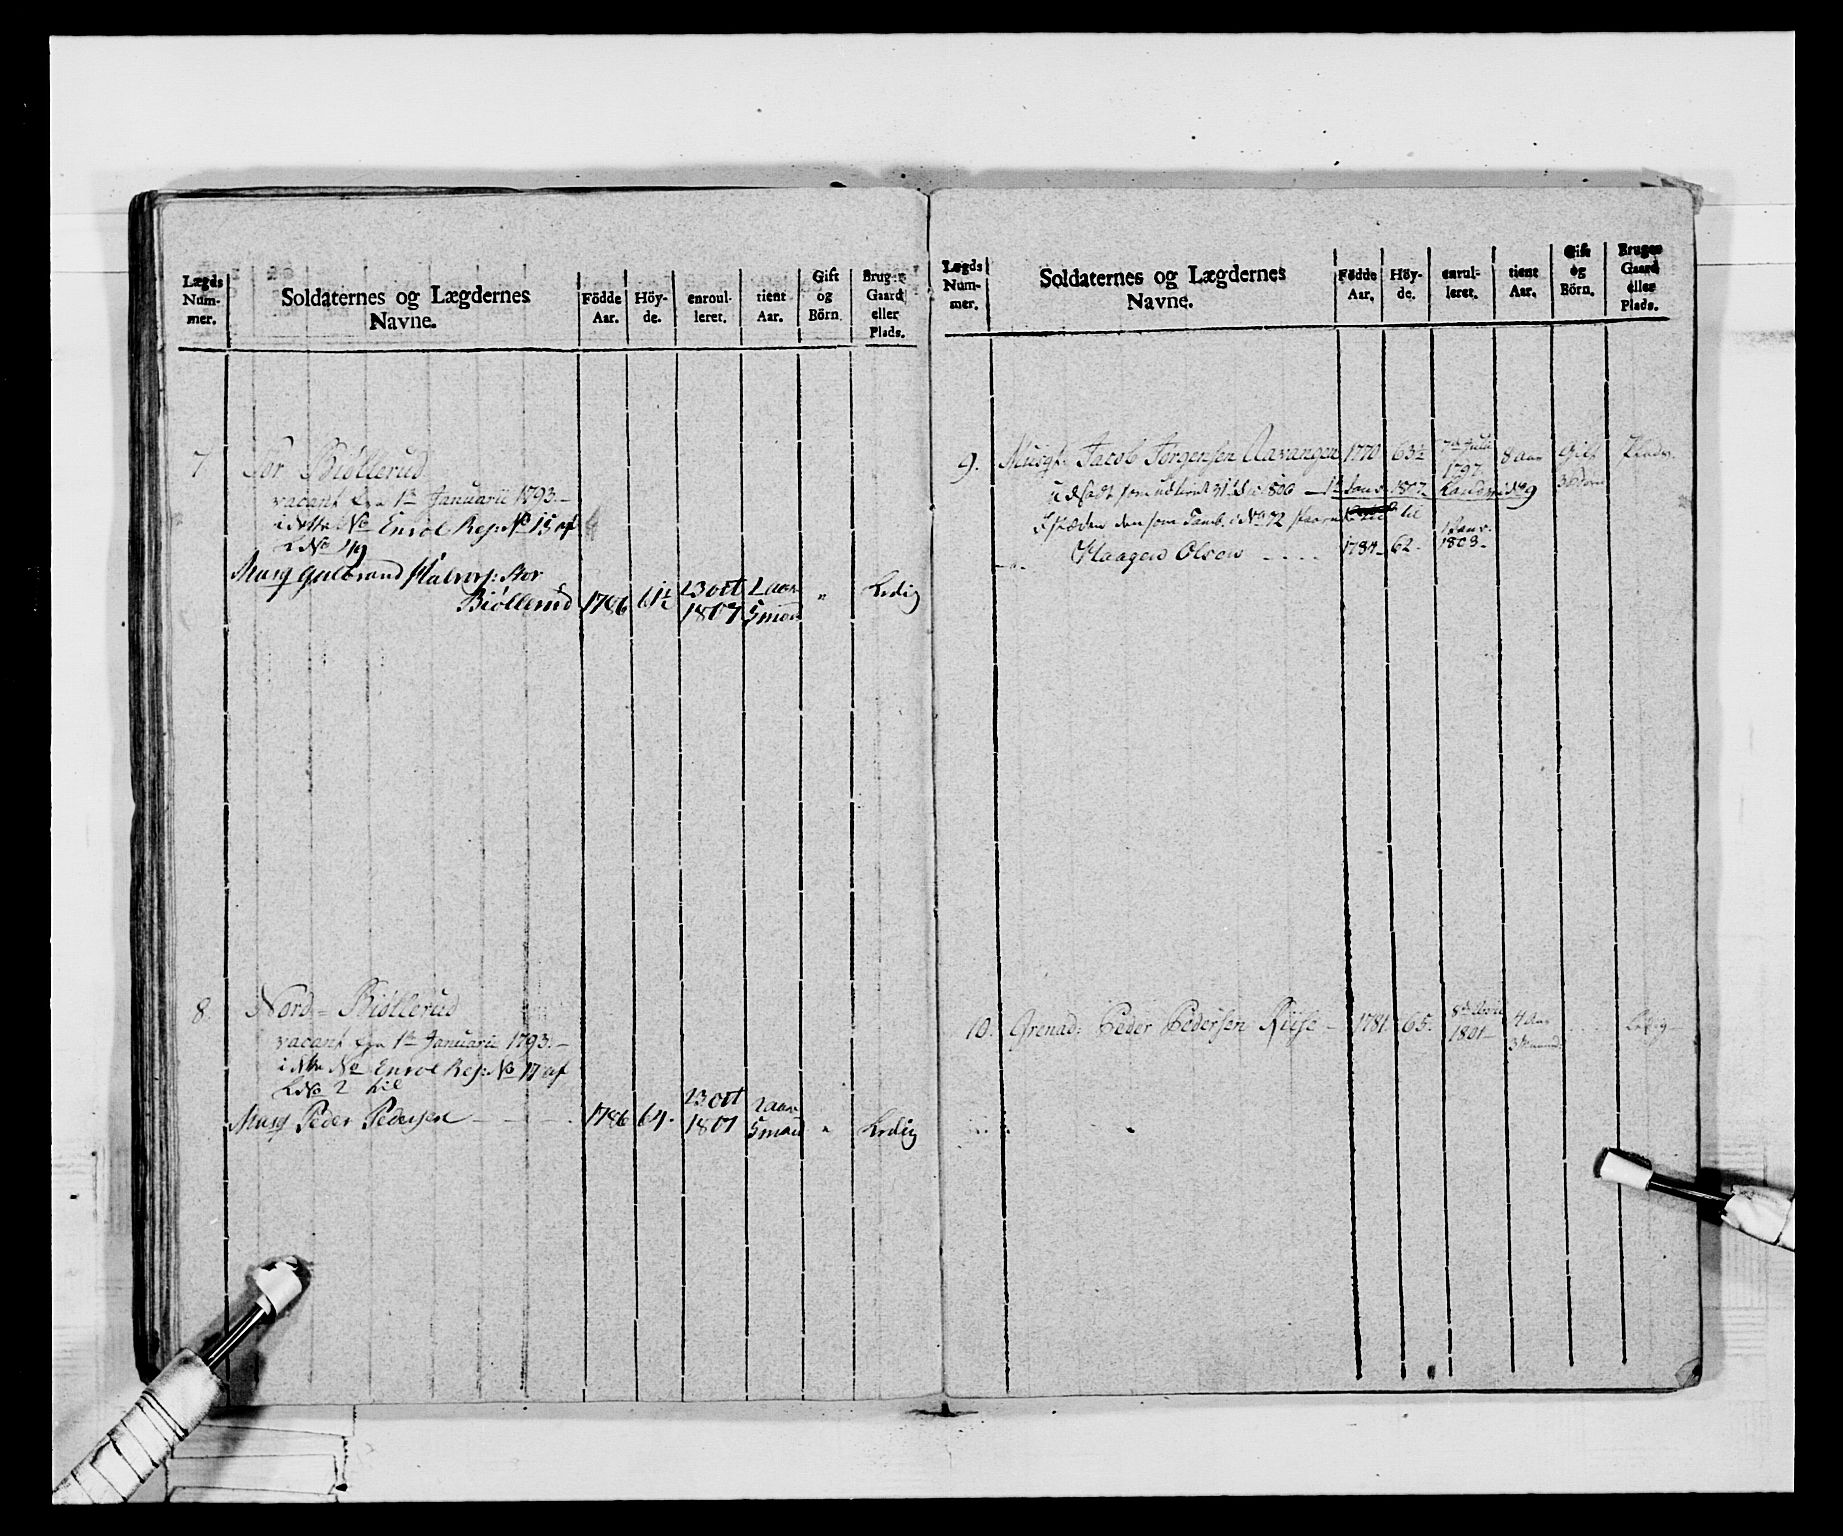 Lægds Num- mer.
Soldaternes og Lægdernes Navne.
Födde Aar.
Höy- de.
enroul- leret.
tient Aar.
Gift og Börn
Bruger Gaard eller Plads.
7 Stor Biøllerud
vacant fra 1te Januarii 1793.-
Enrol Rep: No 15 af
L No 49
Musq Gulbrand Halvors: Stor
Biøllerud 1786 61½ 23 oct 1807 2 aar 5 maan " Ledig
8. Nord = Biøllerud
vacant fra 1te Januarii 1793.-
No Enrol Rep: No 17 af
L No 2 til
Musq Peder Pedersen - - - 1786 64. 23 oct 1807 2 aar 5 maan " Ledig
Lægds Num- mer.
Soldaternes og Lægdernes Navne.
Födde Aar.
Höy- de.
enrul- leret.
tient Aar.
Gift og Börn.
Bruger Gaard eller Plads.
9. Musqt: Jacob Jørgensen Aavangen 1770 63½ 7de Julii 1797. 8 Aar Gift 3 Børn Plads.
1806 - 1te Janr. 1807.
den som Tamb. i No 72 til
Haagen Olsen - - - - 1784 - 62. 1 Janr. 1803 -
10. Grenad: Peder Pedersen Riise - 1781 - 65. 1801 - 4 Aar 3 Maaned Ledig